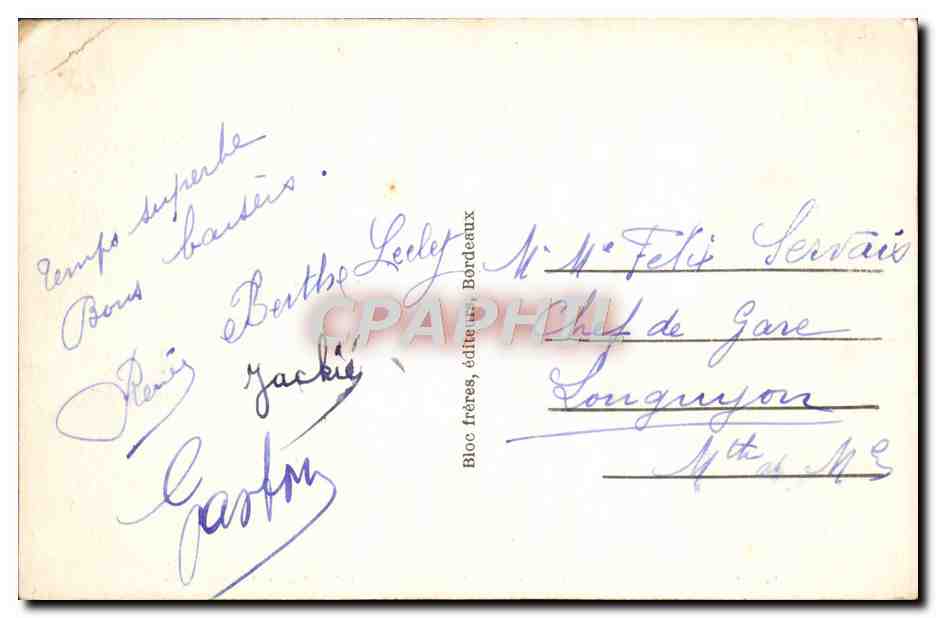 Temps superbe
Bons baisers.
Renée
Berthe
Jackie
Gaston
Bloc frères, éditeurs, Bordeaux
CPAPHIL
Mr Me Felix Servais
Chef de Gare
Longuyon
Mthe et Mle